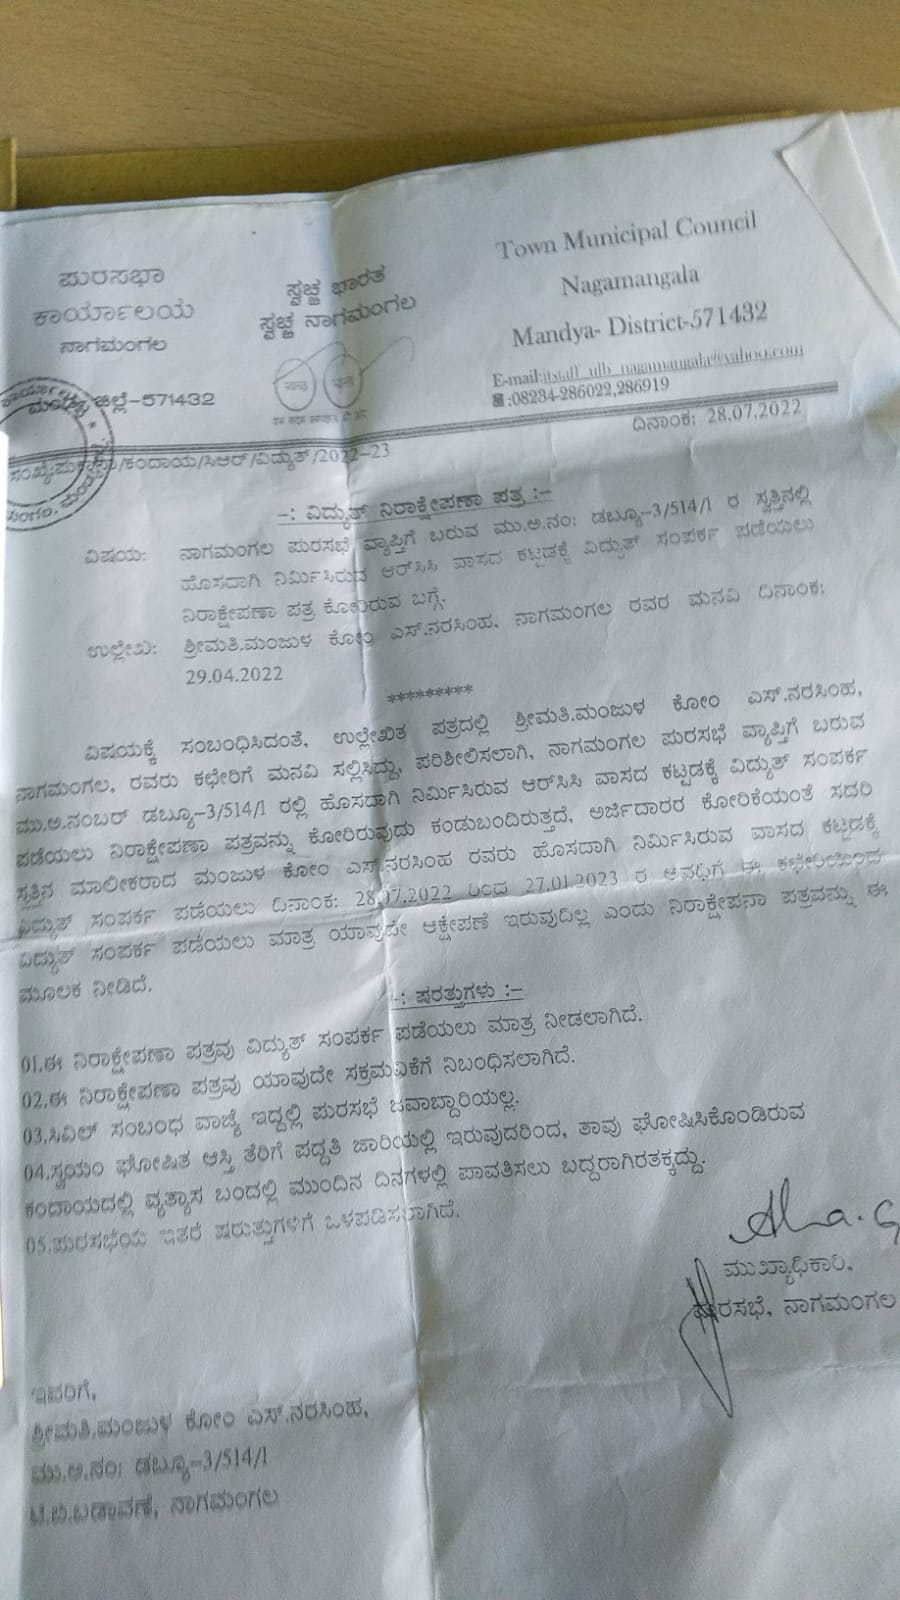 ಪುರಸಭಾ
ಕಾರ್ಯಾಲಯ
ನಾಗಮಂಗಲ
ಮಂಡ್ಯ ಜಿಲ್ಲೆ-571432
ಸ್ವಚ್ಛ ಭಾರತ
ಸ್ವಚ್ಛ ನಾಗಮಂಗಲ
Town Municipal Council
Nagamangala
Mandya- District-571432
E-mail:itstaff_ulb_nagamangala@yahoo.com
:08234-286022,286919
/ಕಂದಾಯ/ಸಿಆರ್/ವಿದ್ಯುತ್/2022-23
ದಿನಾಂಕ: 28.07.2022
-: ವಿದ್ಯುತ್ ನಿರಾಕ್ಷೇಪಣಾ ಪತ್ರ :-
ವಿಷಯ: ನಾಗಮಂಗಲ ಪುರಸಭೆ ವ್ಯಾಪ್ತಿಗೆ ಬರುವ ಮು.ಅ.ನಂ: ಡಬ್ಲ್ಯೂ-3/514/1 ರ ಸ್ವತ್ತಿನಲ್ಲಿ
ಹೊಸದಾಗಿ ನಿರ್ಮಿಸಿರುವ ಆರ್‌ಸಿಸಿ ವಾಸದ ಕಟ್ಟಡಕ್ಕೆ ವಿದ್ಯುತ್ ಸಂಪರ್ಕ ಪಡೆಯಲು
ನಿರಾಕ್ಷೇಪಣಾ ಪತ್ರ ಕೋರಿರುವ ಬಗ್ಗೆ.
ಉಲ್ಲೇಖ: ಶ್ರೀಮತಿ.ಮಂಜುಳ ಕೋಂ ಎಸ್.ನರಸಿಂಹ, ನಾಗಮಂಗಲ ರವರ ಮನವಿ ದಿನಾಂಕ:
29.04.2022
*********
ವಿಷಯಕ್ಕೆ ಸಂಬಂಧಿಸಿದಂತೆ, ಉಲ್ಲೇಖಿತ ಪತ್ರದಲ್ಲಿ ಶ್ರೀಮತಿ.ಮಂಜುಳ ಕೋಂ ಎಸ್.ನರಸಿಂಹ,
ನಾಗಮಂಗಲ, ರವರು ಕಛೇರಿಗೆ ಮನವಿ ಸಲ್ಲಿಸಿದ್ದು, ಪರಿಶೀಲಿಸಲಾಗಿ, ನಾಗಮಂಗಲ ಪುರಸಭೆ ವ್ಯಾಪ್ತಿಗೆ ಬರುವ
ಮು.ಅ.ನಂಬರ್ ಡಬ್ಲ್ಯೂ-3/514/1 ರಲ್ಲಿ ಹೊಸದಾಗಿ ನಿರ್ಮಿಸಿರುವ ಆರ್‌ಸಿಸಿ ವಾಸದ ಕಟ್ಟಡಕ್ಕೆ ವಿದ್ಯುತ್ ಸಂಪರ್ಕ
ಪಡೆಯಲು ನಿರಾಕ್ಷೇಪಣಾ ಪತ್ರವನ್ನು ಕೋರಿರುವುದು ಕಂಡುಬಂದಿರುತ್ತದೆ, ಅರ್ಜಿದಾರರ ಕೋರಿಕೆಯಂತೆ ಸದರಿ
ಸ್ವತ್ತಿನ ಮಾಲೀಕರಾದ ಮಂಜುಳ ಕೋಂ ಎಸ್.ನರಸಿಂಹ ರವರು ಹೊಸದಾಗಿ ನಿರ್ಮಿಸಿರುವ ವಾಸದ ಕಟ್ಟಡಕ್ಕೆ
ವಿದ್ಯುತ್ ಸಂಪರ್ಕ ಪಡೆಯಲು ದಿನಾಂಕ: 28.07.2022 ರಿಂದ 27.01.2023 ರ ಅವಧಿಗೆ ಈ ಕಛೇರಿಯಿಂದ
ವಿದ್ಯುತ್ ಸಂಪರ್ಕ ಪಡೆಯಲು ಮಾತ್ರ ಯಾವುದೇ ಆಕ್ಷೇಪಣೆ ಇರುವುದಿಲ್ಲ ಎಂದು ನಿರಾಕ್ಷೇಪನಾ ಪತ್ರವನ್ನು ಈ
ಮೂಲಕ ನೀಡಿದೆ.
-: ಷರತ್ತುಗಳು :-
01.ಈ ನಿರಾಕ್ಷೇಪಣಾ ಪತ್ರವು ವಿದ್ಯುತ್ ಸಂಪರ್ಕ ಪಡೆಯಲು ಮಾತ್ರ ನೀಡಲಾಗಿದೆ.
02.ಈ ನಿರಾಕ್ಷೇಪಣಾ ಪತ್ರವು ಯಾವುದೇ ಸಕ್ರಮವಿಕೆಗೆ ನಿಬಂಧಿಸಲಾಗಿದೆ.
03.ಸಿವಿಲ್ ಸಂಬಂಧ ವಾಜ್ಯೆ ಇದ್ದಲ್ಲಿ ಪುರಸಭೆ ಜವಾಬ್ದಾರಿಯಲ್ಲ.
04.ಸ್ವಯಂ ಘೋಷಿತ ಆಸ್ತಿ ತೆರಿಗೆ ಪದ್ದತಿ ಜಾರಿಯಲ್ಲಿ ಇರುವುದರಿಂದ, ತಾವು ಘೋಷಿಸಿಕೊಂಡಿರುವ
ಕಂದಾಯದಲ್ಲಿ ವ್ಯತ್ಯಾಸ ಬಂದಲ್ಲಿ ಮುಂದಿನ ದಿನಗಳಲ್ಲಿ ಪಾವತಿಸಲು ಬದ್ದರಾಗಿರತಕ್ಕದ್ದು.
05.ಪುರಸಭೆಯ ಇತರೆ ಷರುತ್ತುಗಳಿಗೆ ಒಳಪಡಿಸಲಾಗಿದೆ.
ಮುಖ್ಯಾಧಿಕಾರಿ,
ಪುರಸಭೆ, ನಾಗಮಂಗಲ
ಇವರಿಗೆ,
ಶ್ರೀಮತಿ.ಮಂಜುಳ ಕೋಂ ಎಸ್.ನರಸಿಂಹ,
ಮು.ಅ.ನಂ: ಡಬ್ಲ್ಯೂ-3/514/1
ಟಿ.ಬಿ.ಬಡಾವಣೆ, ನಾಗಮಂಗಲ